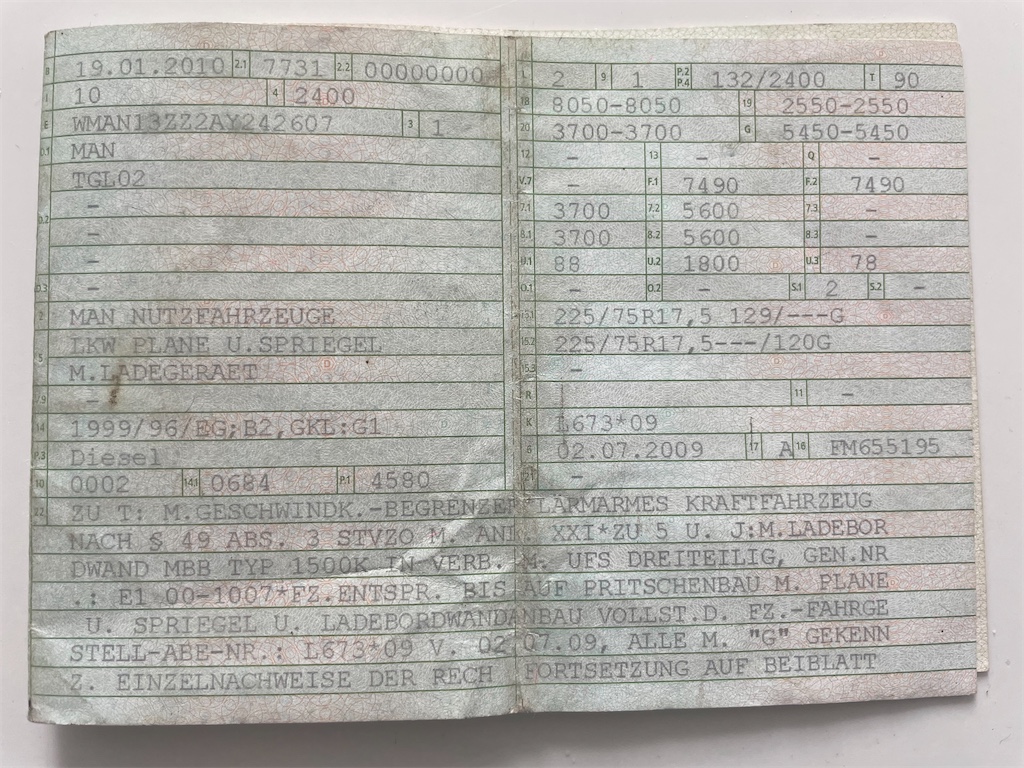 B 19.01.2010 2.1 7731 2.2 00000000
J 10 4 2400
E WMAN13ZZ2AY242607 3 1
D.1 MAN
TGL02
–
D.2 –
–
D.3 –
2 MAN NUTZFAHRZEUGE
5 LKW PLANE U.SPRIEGEL
M.LADEGERAET
V.9 –
14 1999/96/EG;B2,GKL:G1
P.3 Diesel
10 0002 14.1 0684 P.1 4580
L 2 9 1 P.2 P.4 132/2400 T 90
18 8050-8050 19 2550-2550
20 3700-3700 G 5450-5450
12 – 13 – Q –
V.7 – F.1 7490 F.2 7490
7.1 3700 7.2 5600 7.3 –
8.1 3700 8.2 5600 8.3 –
U.1 88 U.2 1800 U.3 78
O.1 – O.2 – S.1 2 S.2 –
15.1 225/75R17,5 129/---G
15.2 225/75R17,5---/120G
15.3 –
R 11 –
K L673*09
6 02.07.2009 17 A 16 FM655195
21 –
22 ZU T: M.GESCHWINDK.-BEGRENZER LÄRMARMES KRAFTFAHRZEUG
NACH § 49 ABS. 3 STVZO M. ANL. XXI*ZU 5 U. J:M.LADEBOR
DWAND MBB TYP 1500K IN VERB. M. UFS DREITEILIG, GEN.NR
.: E1 00-1007*FZ.ENTSPR. BIS AUF PRITSCHENBAU M. PLANE
U. SPRIEGEL U. LADEBORDWANDANBAU VOLLST.D. FZ.-FAHRGE
STELL-ABE-NR.: L673*09 V. 02.07.09, ALLE M. "G" GEKENN
Z. EINZELNACHWEISE DER RECH FORTSETZUNG AUF BEIBLATT